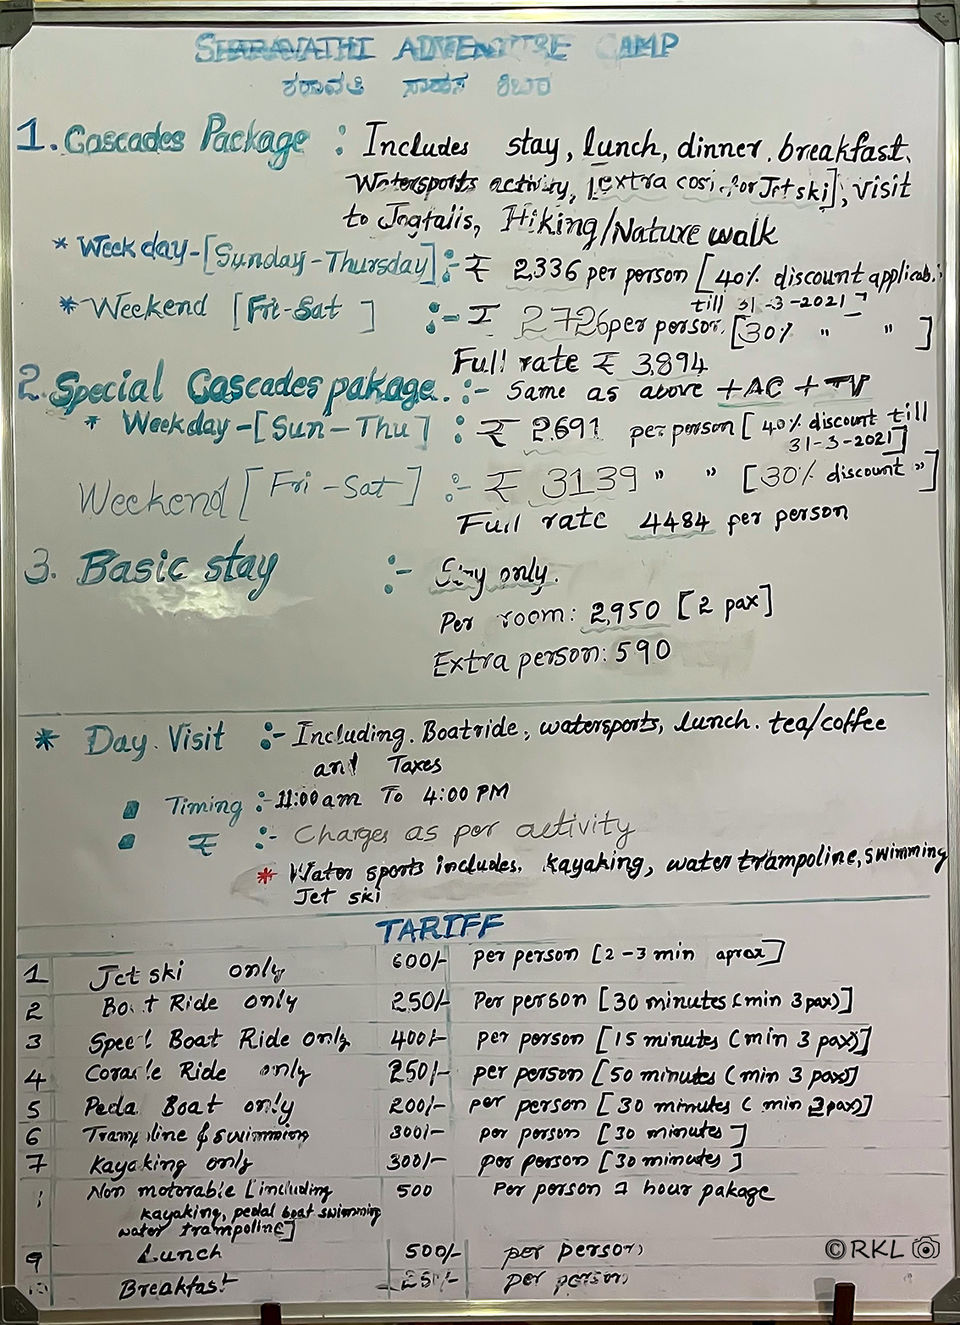 SHARAVATHI ADVENTURE CAMP
ಶರಾವತಿ ಸಾಹಸ ಶಿಬಿರ
1. Cascades Package : Includes stay, lunch, dinner, breakfast,
Watersports activity, [extra cost for Jet ski], visit
to Jogfalls, Hiking/Nature walk
* Weekday-[Sunday-Thursday] :- ₹ 2,336 per person [40% discount applicab
till 31-3-2021]
* Weekend [Fri-Sat] :- ₹ 2726 per person [30% " " ]
Full rate ₹ 3,894
2. Special Cascades pakage. :- Same as above +AC + TV
* Weekday-[Sun-Thu] : ₹ 2,691 per person [40% discount till
31-3-2021]
Weekend [Fri-Sat] :- ₹ 3139 " " [30% discount "]
Full rate 4484 per person
3. Basic stay :- Stay only.
Per room: 2,950 [2 pax]
Extra person: 590
* Day Visit :- Including. Boatride, watersports, lunch. tea/coffee
and Taxes
Timing :- 11:00am To 4:00 PM
₹ :- Charges as per activity
* Water sports includes, kayaking, water trampoline, swimming
Jet ski
TARIFF
1 Jet ski only 600/- per person [2-3 min aprox]
2 Boat Ride only 250/- Per person [30 minutes (min 3 pax)]
3 Speed Boat Ride only 400/- per person [15 minutes (min 3 pax)]
4 Coracle Ride only 250/- per person [50 minutes (min 3 pax)]
5 Pedal Boat only 200/- per person [30 minutes (min 2 pax)]
6 Trampoline & swimming 300/- per person [30 minutes]
7 Kayaking only 300/- per person [30 minutes]
Non motorable [including 500 Per person 1 hour pakage
kayaking, pedal boat swimming
water trampoline]
9 Lunch 500/- per person
10 Breakfast 250/- per person
©RKL